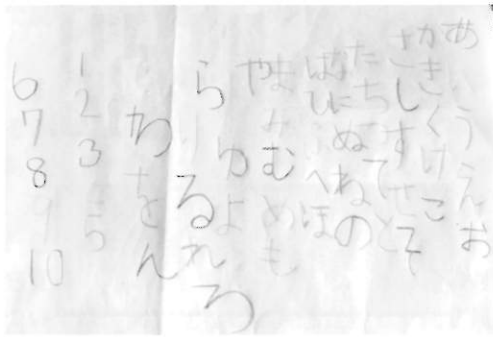 あいうえお
かきくけこ
さしすせそ
たちてと
なにぬねの
はひへほ
まみむめも
やゆよ
らりるれろ
わをん
1 2 3 5
6 7 8 9 10